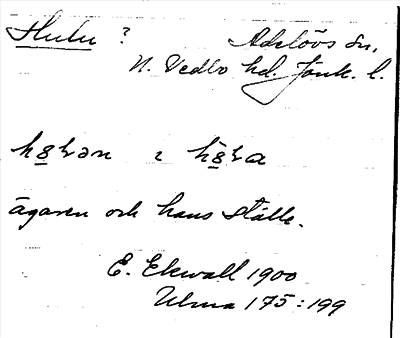 Hulu ?
Adelövs sn,
N. Vedbo hd. Jönk. l.
ägaren och hans ställe.
E. Ekwall 1900
Ulma 175:199